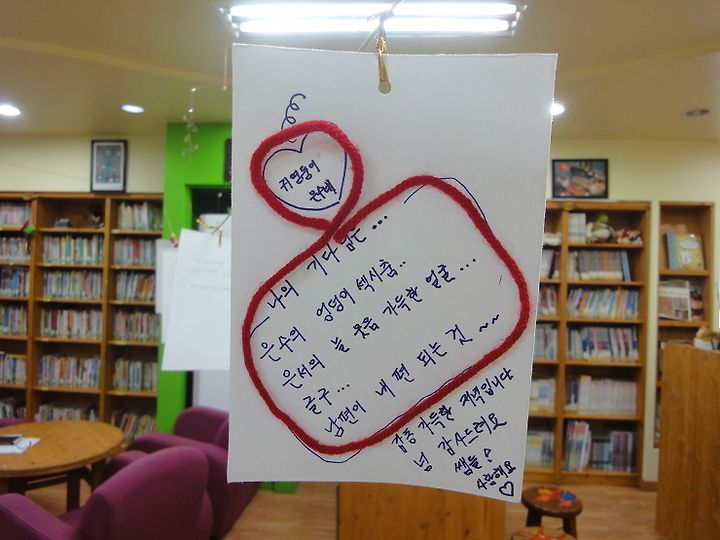 귀염둥이
나의 기다림은...
은수의 엉덩이 섹시춤..
은서의 늘 웃음 가득한 얼굴...
글구...
남편이 내 편 되는 것~~
감동 가득한 저녁입니다
넘 감사드려요
쌤들!
사랑해요♡